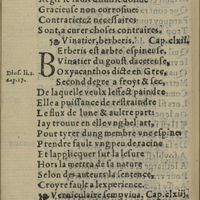 Graciculе non corrosiues
Contrarietez necessaires
Sont, a curer choses contraires.
Vinatier, berberis. Cap. clxii.
BErberis est arbre espineuse,
Vinatier du goust daceteuse,
Oxyacanthos dicte en Grec,
Diosc. li. 1.
Second degre a froyt & sec,
De laquelle veulx lesse & paindre
Elle a puissance de restraindre
Le flux de lune & aultre part:
Jay trouue en elle vng bel art,
Pour tyrer dung membre vne espine:
Prendre fault vng peu de racine
Et lapplicquer sur la lesure
Hors la mettra de sa nature
Selon des auteurs la sentence,
Croyre fault a lexperience.
Vermiculaire sempuiua. Cap. clxiij.